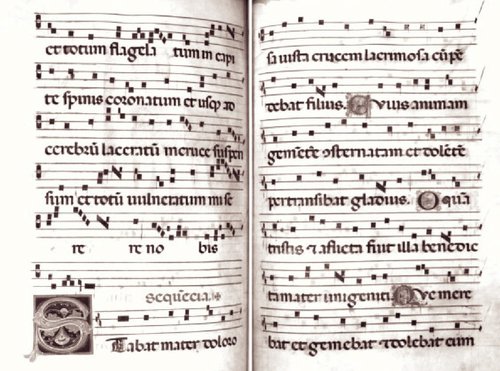 et totum flagela tum in capi
te spinis coronatum et usq̨ ad
cerebrũ laceratũ in cruce suspen
sum et totũ vulneratum mise
re re no bis
Sequẽcia
Stabat mater doloro
sa iusta crucem lacrimosa dũ pẽ
debat filius. Cuius animam
gemẽtẽ ↄtristatam et dolẽtẽ
pertransibat gladius. O quã
tristis ⁊ aflicta fuit illa benedic
ta mater unigeniti. Que mere
bat et gemebat ⁊ dolebat cum